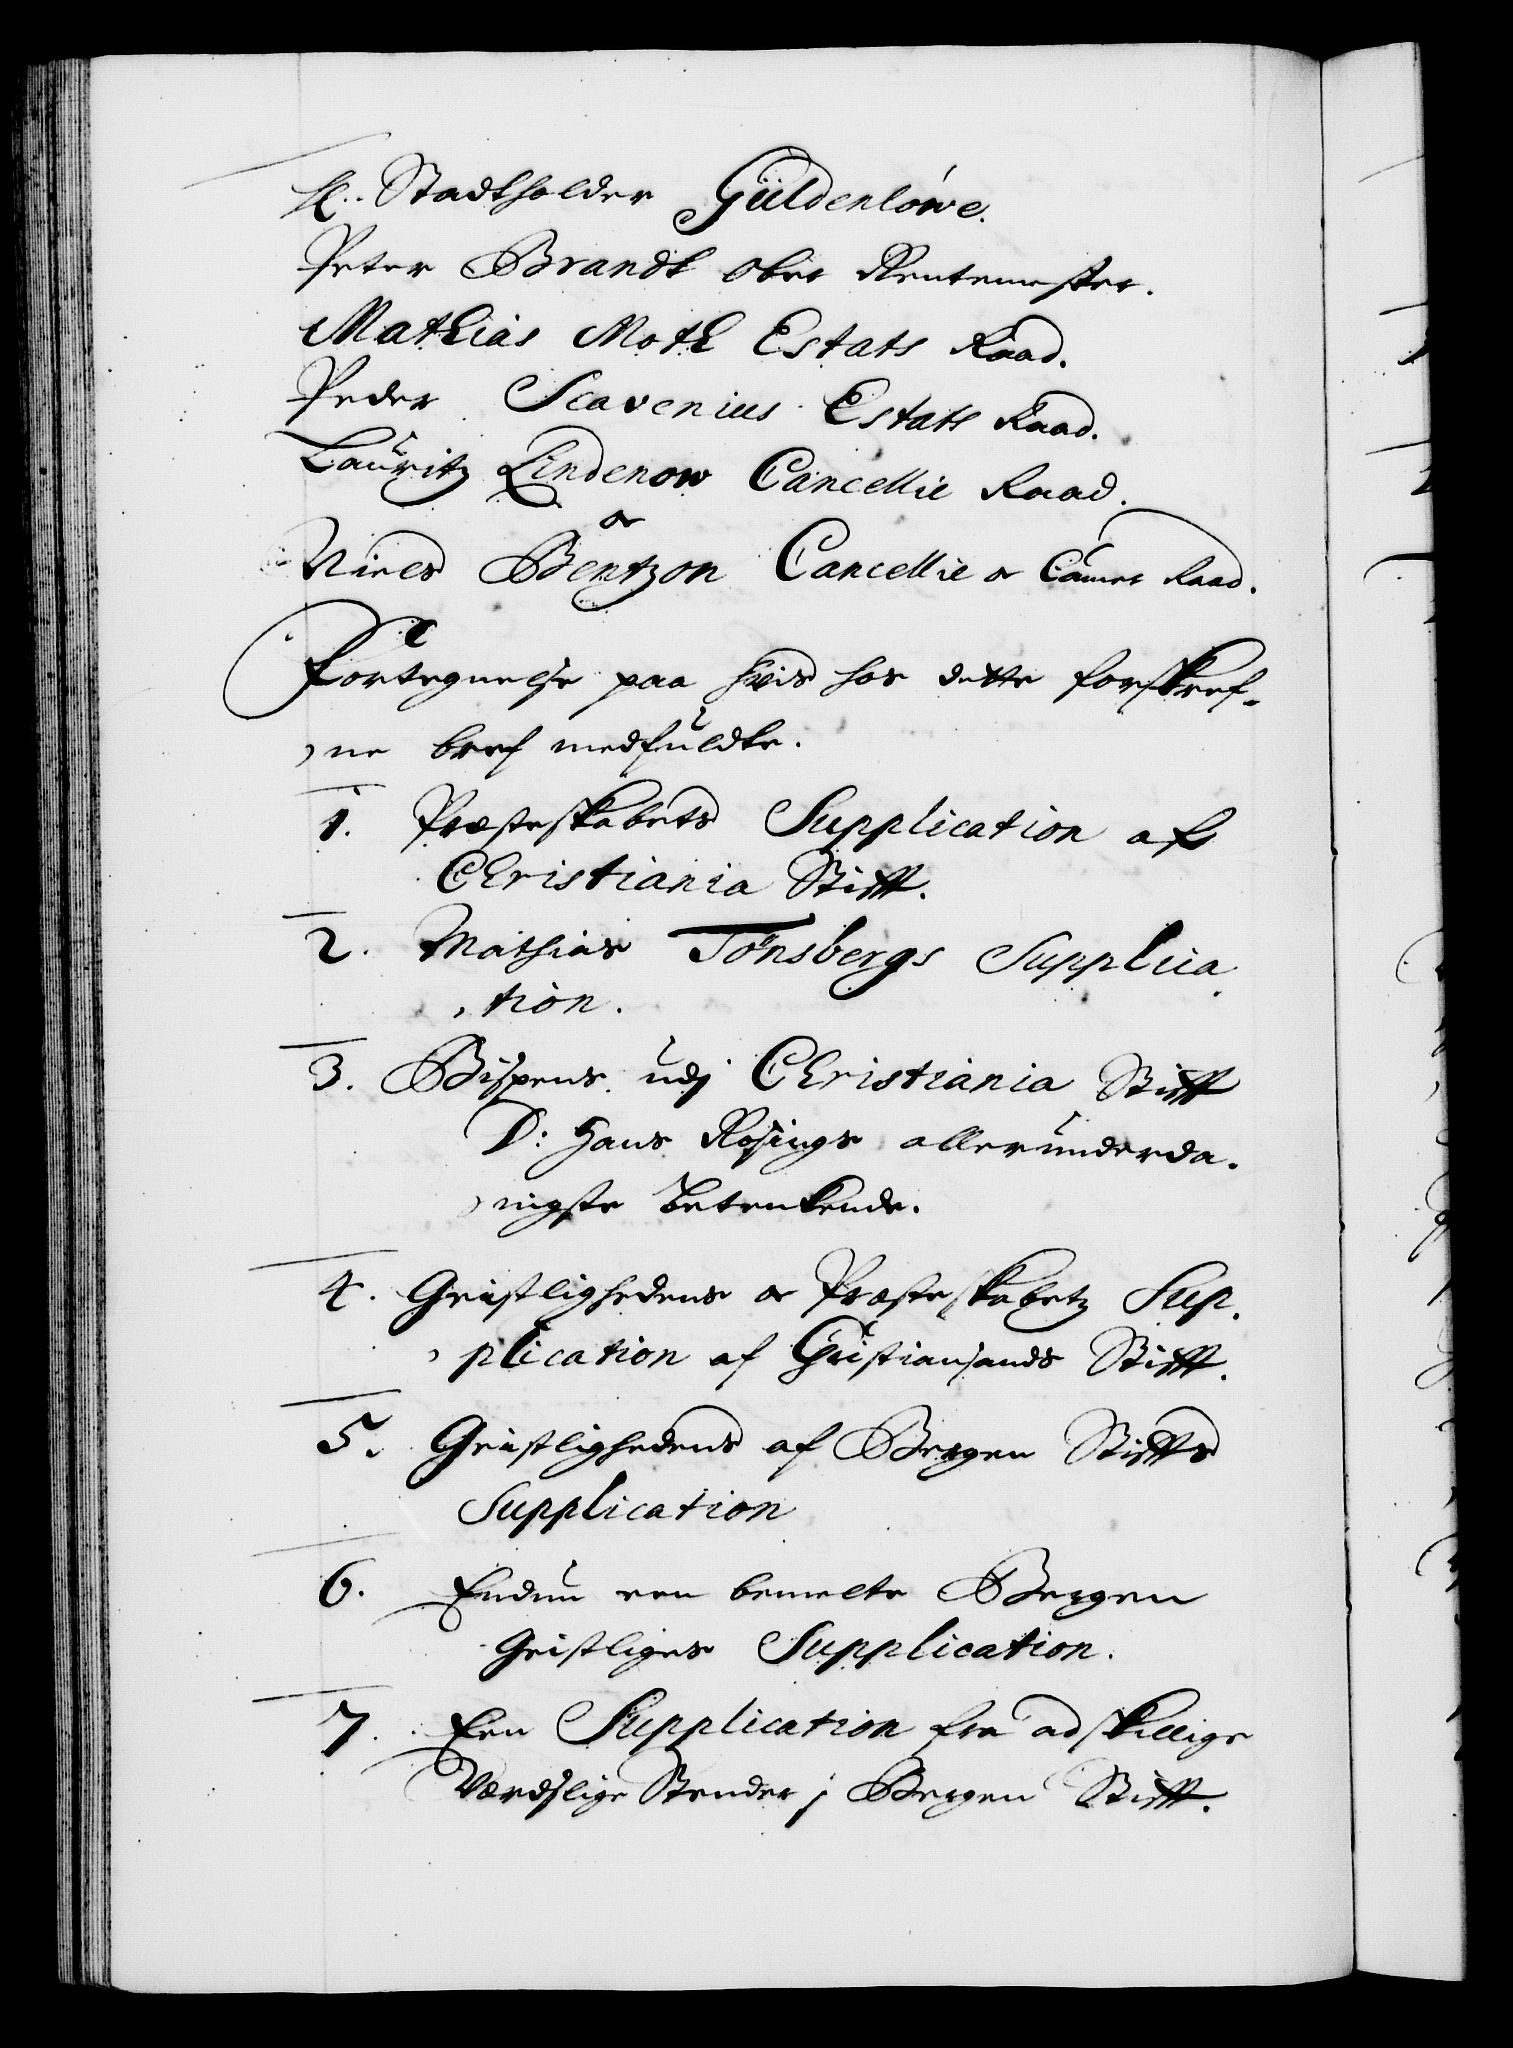 H. Stadtholder Güldenlöwe.
Peter Brandt ober Rentemester.
Mathias Moth Estats Raad.
Peder Scavenius Estats Raad.
Lauritz Lindenow Cancellie Raad.
or
Niels Bentzon Cancellie or Camer Raad.
Fortegnelse paa hvis hos dette forskref-
ne bref medfuldte.
1. Præsteskabets Supplication af
Christiania Stifft.
2. Mathias Tönsbergs Supplica
tion.
3. Bispens udj Christiania Stifft
D: Hans Rosings allerunderda-
nigste betenkende.
4. Geistlighedens or Præsteskabetz Sup
plication af Christiansands Stifft.
5. Geistlighedens af Bergen Stiffts
Supplication
6. Endnu een bemelte Bergen
Geistliges Supplication.
7. Een Supplication fra adskillige
Værdslige Stender j Bergen Stifft.